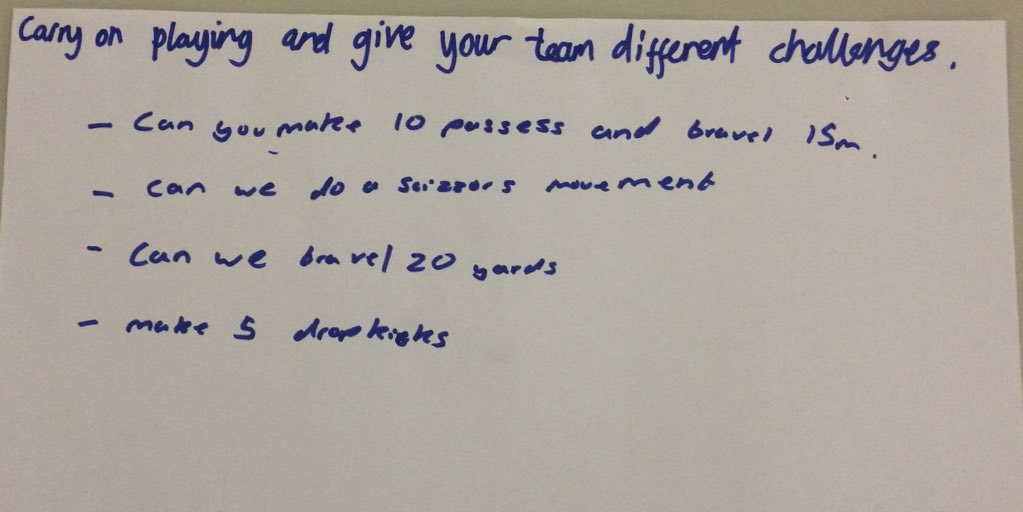 Carry on playing and give your team different challenges.
- Can you make 10 possess and travel 15m.
- Can we do a scizzors movement
- Can we travel 20 yards
- make 5 dropkicks